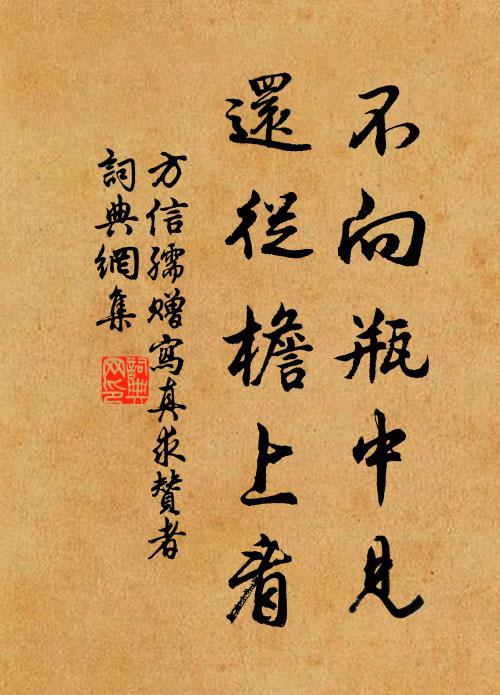 不向瓶中見
還從檐上看
方信孺贈寫真求贊者
詞典網集
詞典
网印